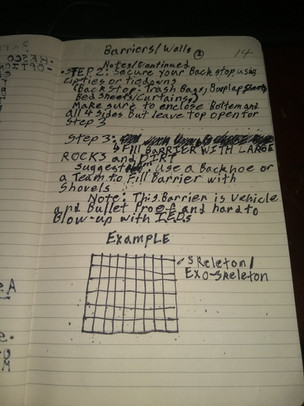 Barriers/Walls 2
14
Notes/Continued
- STEP 2: Secure your Backstop using
Zipties or tiedowns
(Backstop: Trash Bags, Burlap sheets
Bed sheets/Curtains)
Make sure to enclose Bottom and
all 4 sides but leave top open for
Step 3
Step 3:
FILL BARRIER WITH LARGE
ROCKS and DIRT
Suggest use a Backhoe or
a Team to Fill Barrier with
Shovels
Note: This Barrier is vehicle
and Bullet Proof and hard to
Blow-up with IEDs
Example
Skeleton/
Exo-skeleton